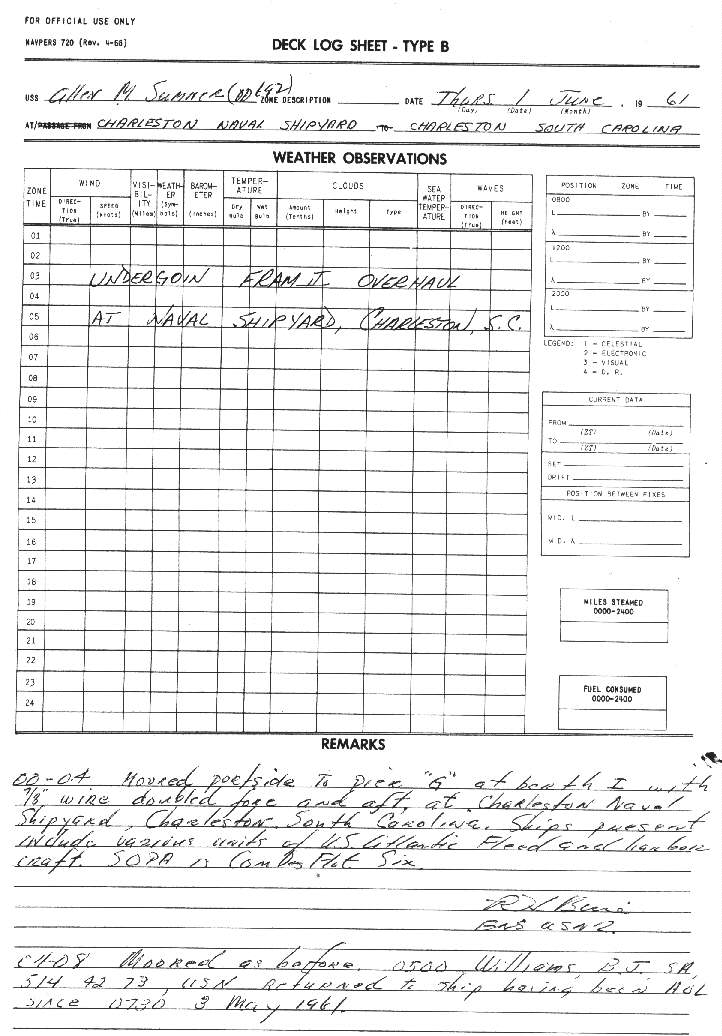 FOR OFFICIAL USE ONLY
NAVPERS 720 (Rev. 4-58)
DECK LOG SHEET - TYPE B
USS Allen M. Sumner (DD 692) ZONE DESCRIPTION DATE Thurs 1 June , 19 61
(Day) (Date) (Month)
AT/PASSAGE FROM CHARLESTON NAVAL SHIPYARD TO CHARLESTON SOUTH CAROLINA
WEATHER OBSERVATIONS
ZONE TIME
WIND
DIREC-TION (True)
SPEED (knots)
VISI-BIL-ITY (Miles)
WEATH-ER (Sym-bols)
BAROM-ETER (inches)
TEMPER-ATURE
Dry Bulb
Wet Bulb
CLOUDS
Amount (Tenths)
Height
Type
SEA WATER TEMPER-ATURE
WAVES
DIREC-TION (True)
HEIGHT (feet)
01
02
03 UNDERGOIN FRAM II OVERHAUL
04
05 AT NAVAL SHIPYARD, CHARLESTON, S.C.
06
07
08
09
10
11
12
13
14
15
16
17
18
19
20
21
22
23
24
POSITION ZONE TIME
0800
L BY
λ BY
1200
L BY
λ BY
2000
L BY
λ BY
LEGEND: 1 - CELESTIAL
2 - ELECTRONIC
3 - VISUAL
4 - D. R.
CURRENT DATA
FROM
(ZT) (Date)
TO
(ZT) (Date)
SET
DRIFT
POSITION BETWEEN FIXES
MID. L
MID. λ
MILES STEAMED
0000-2400
FUEL CONSUMED
0000-2400
REMARKS
00-04 Moored portside to pier "G" at berth I with
7/8" wire doubled fore and aft, at Charleston Naval
Shipyard, Charleston, South Carolina. Ships present
include various units of U.S. Atlantic Fleed and harbor
craft. SOPA is ComDesFlot Six.
ENS USNR
04-08 Moored as before. 0500, Williams, B.J. SA,
514 42 73, USN returned to ship having been AOL
since 0730 3 May 1961.